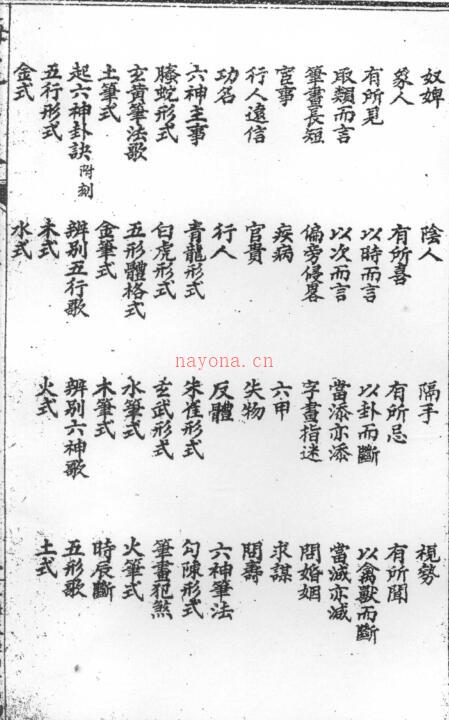 奴婢　陰人　隔手　視勢
人　有所喜　有所忌　有所聞
有所見　以時而言　以卦而斷　以禽獸而斷
取類而言　以次而言　當添亦添　當減亦減
筆畫長短　偏旁侵畧　字畫指迷　問婚姻
官事　疾病　六甲　求謀
行人遠信　官貴　失物　問壽
功名　行人　反體　六神筆法
六神主事　青龍形式　朱雀形式　勾陳形式
螣蛇形式　白虎形式　玄武形式　筆畫犯煞
玄黃筆法歌　五形體格式　水筆式　火筆式
土筆式　金筆式　木筆式　時辰斷
起六神卦訣附刻　辨別五行歌　辨別六神歌　五形歌
五行形式　木式　火式　土式
金式　水式
nayona.cn